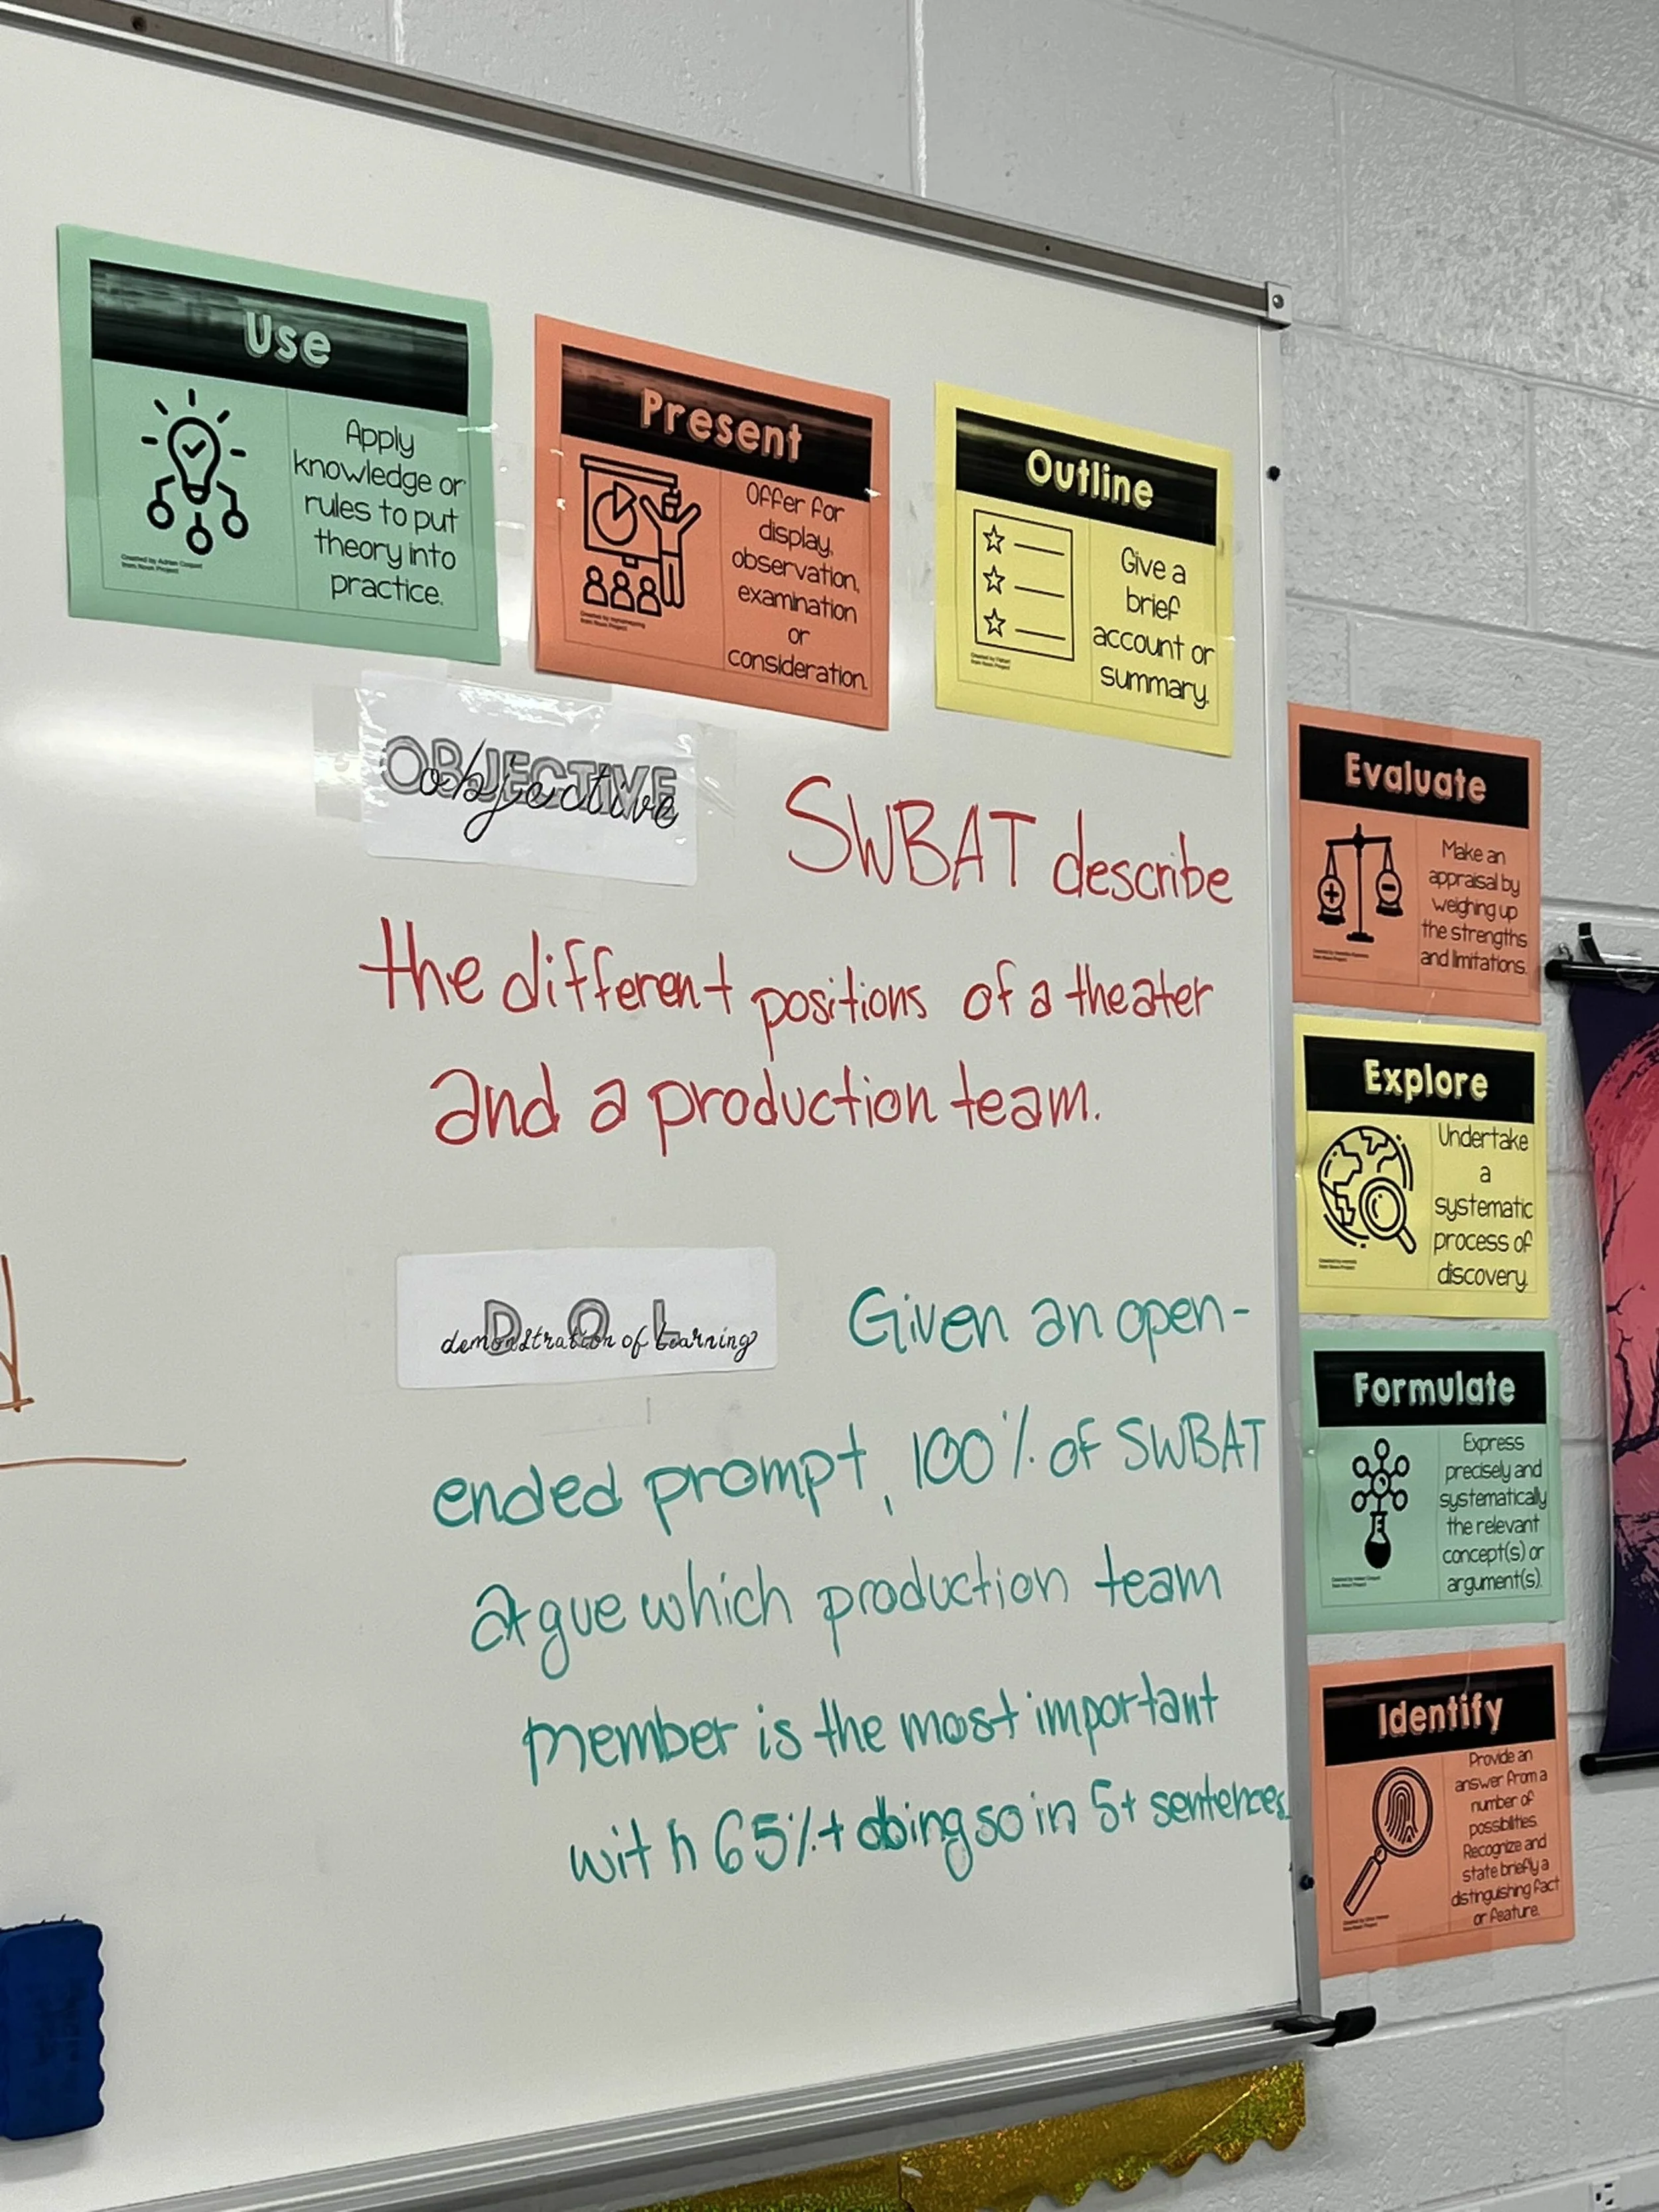 Use
Apply
knowledge or
rules to put
theory into
practice.
Created by Adrien Coquet
from Noun Project
Present
Offer for
display,
observation,
examination
or
consideration.
from Noun Project
Outline
Give a
brief
account or
summary.
from Noun Project
OBJECTIVE
objective
SWBAT describe
the different positions of a theater
and a production team.
D O L
demonstration of learning
Given an open-
ended prompt, 100% of SWBAT
argue which production team
member is the most important
with 65%+ doing so in 5+ sentences.
Evaluate
Make an
appraisal by
weighing up
the strengths
and limitations.
Explore
Undertake
a
systematic
process of
discovery.
Formulate
Express
precisely and
systematically
the relevant
concept(s) or
argument(s).
Identify
Provide an
answer from a
number of
possibilities.
Recognize and
state briefly a
distinguishing fact
or feature.